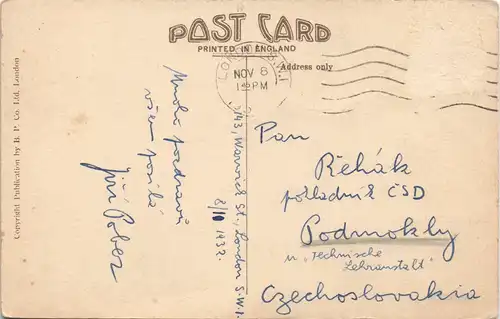 POST CARD
PRINTED IN ENGLAND
Address only
LONDON S.W.1
NOV 8
PM
Copyright Publication by B. P. Co. Ltd. London
Mnoho pozdravů
všem posílá
Jiří Pobez
43, Warwick St., London S.W.1.
Pan
Řehák
pokladník ČSD
Podmokly
u "Technische
Lehranstalt"
Czechoslovakia